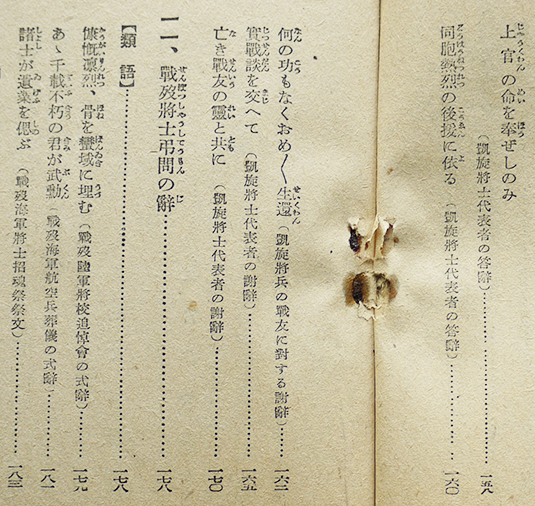 上官の命を奉ぜしのみ
(凱旋將士代表者の答辭)……一五八
同胞熱烈の後援に依る(凱旋將士代表者の答辭)……一六〇
何の功もなくおめ〳〵生還(凱旋將兵の戰友に對する謝辭)……一六三
實戰談を交へて(凱旋將士代表者の謝辭)……一六五
亡き戰友の靈と共に(凱旋將士代表者の謝辭)……一七〇
一一、戰歿將士弔問の辭……一七八
【類語】……一七八
慷慨凛烈、骨を蠻域に埋む(戰歿陸軍將校追悼會の式辭)……一七九
あゝ千載不朽の君が武勳(戰歿海軍航空兵葬儀の式辭)……一八一
諸士が遺業を偲ぶ(戰歿海軍將士招魂祭祭文)……一八三